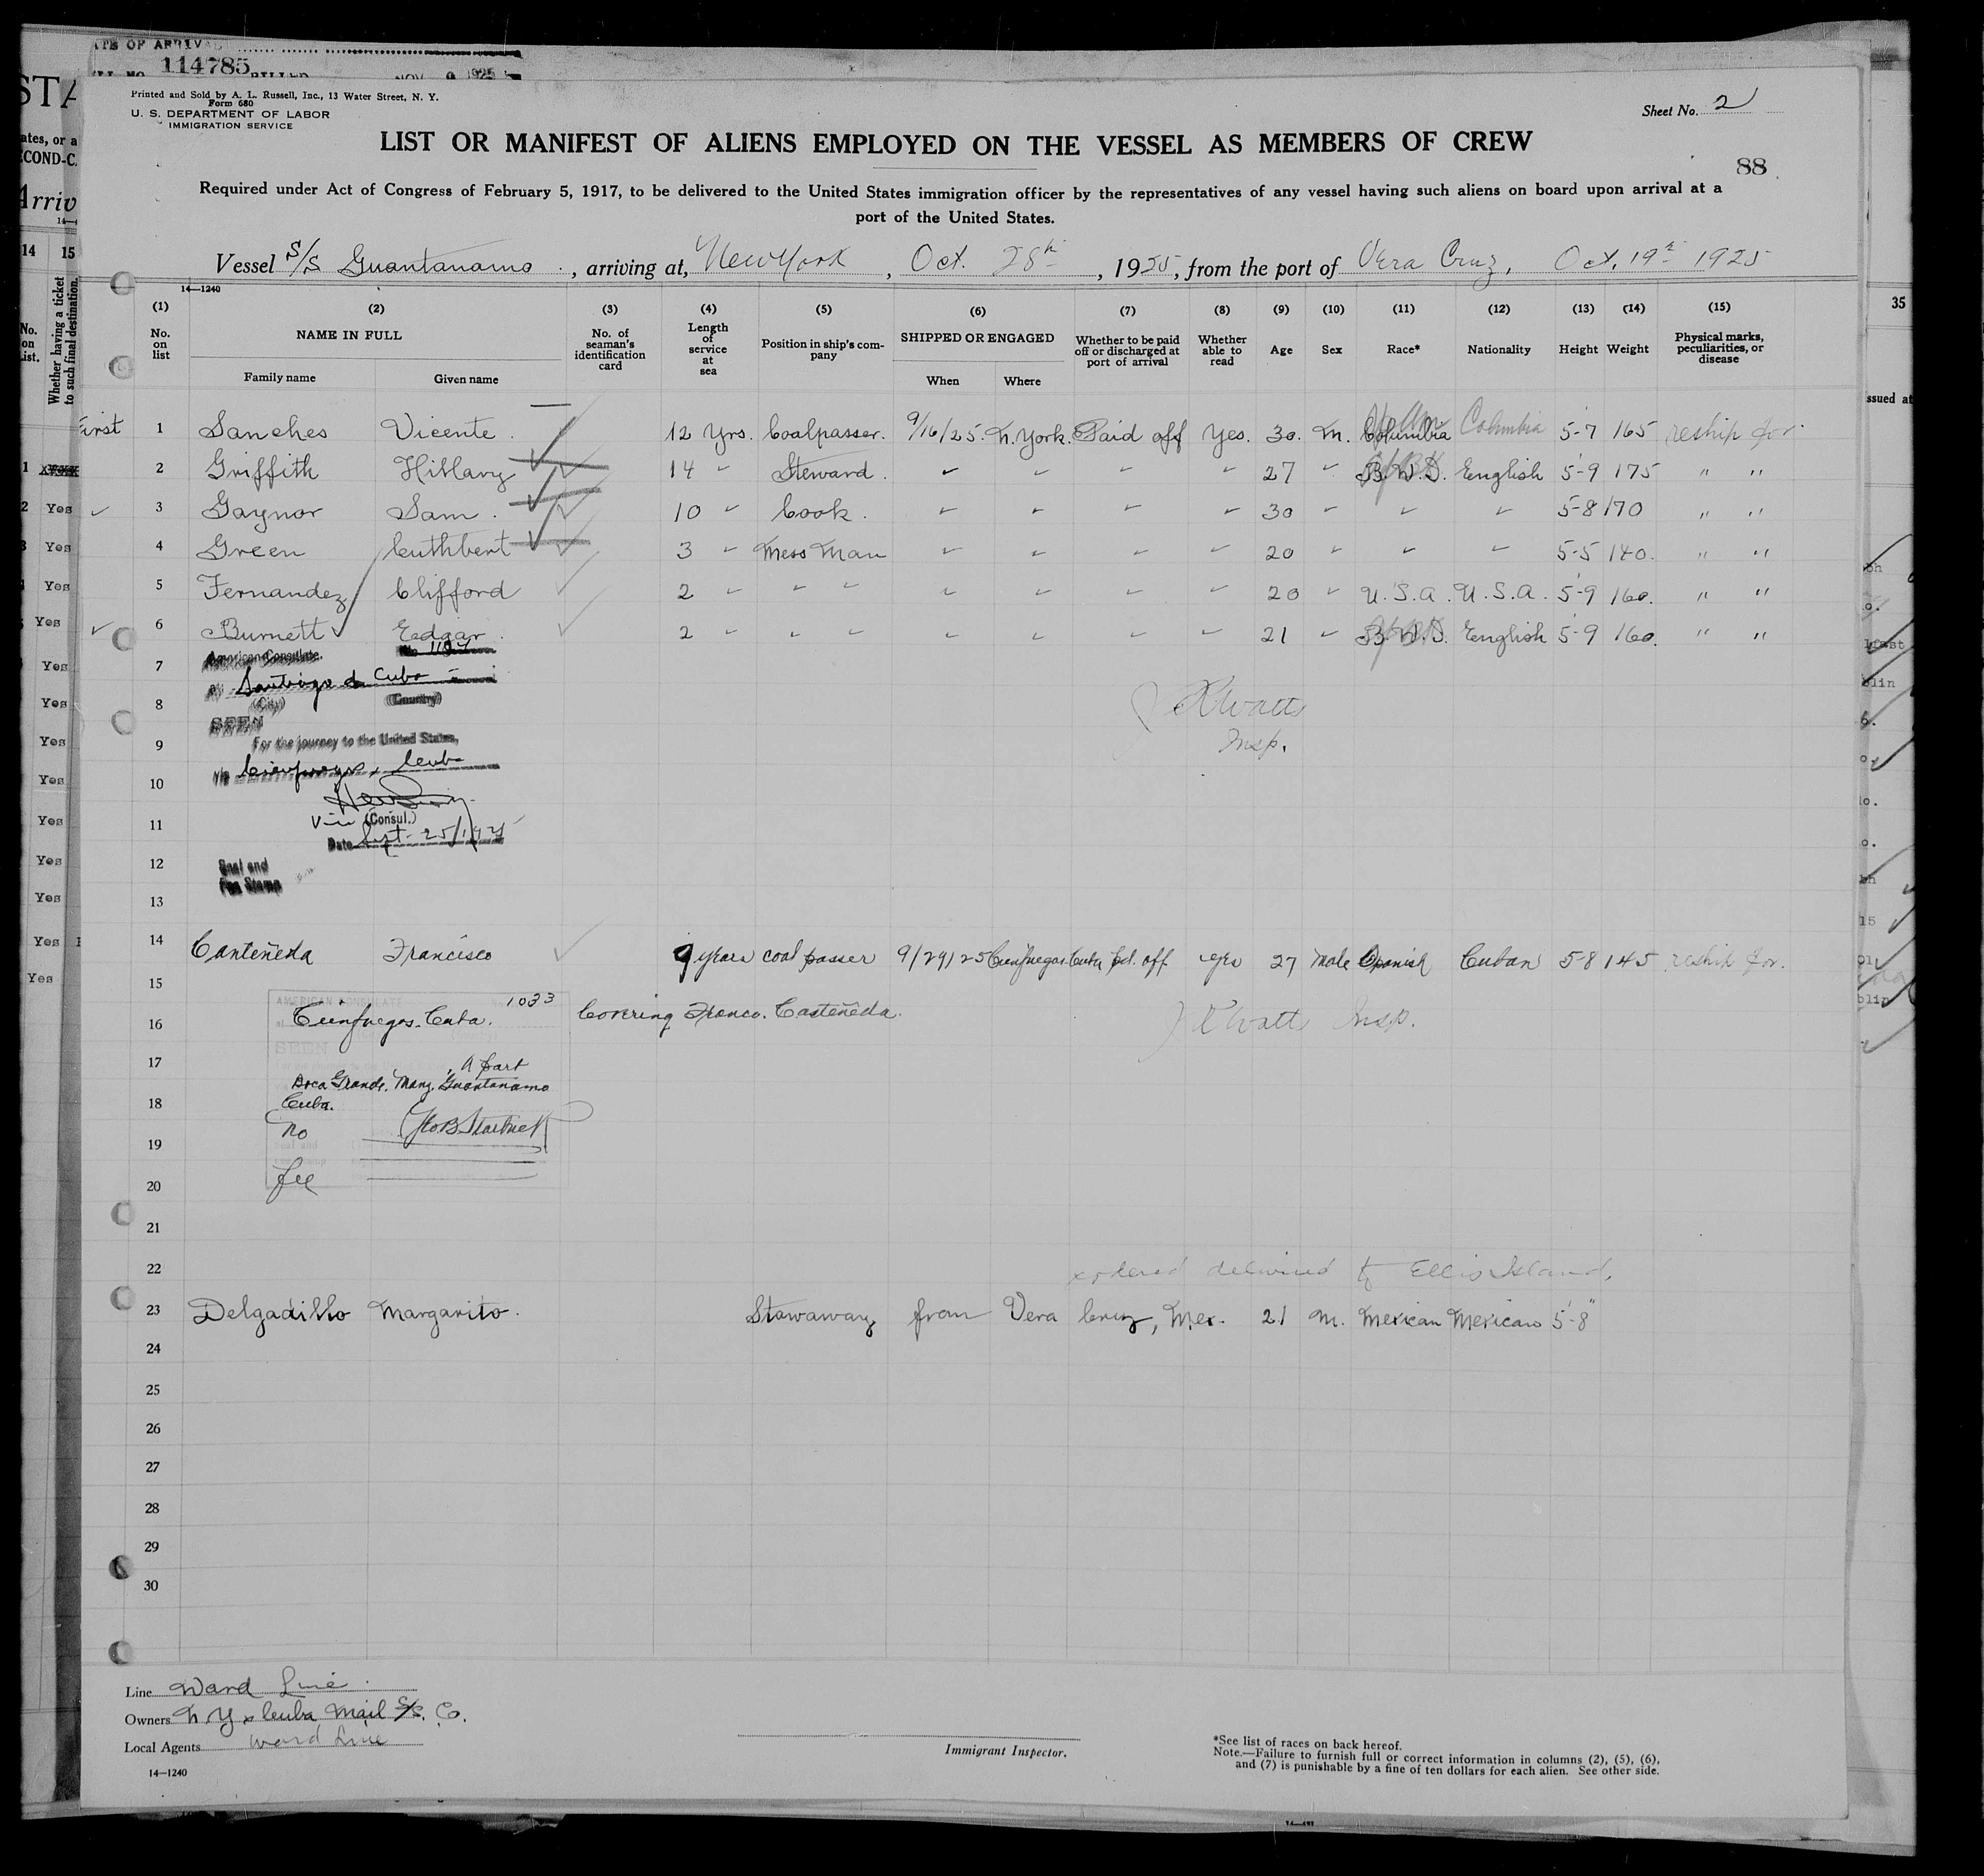 114785
NOV 9 1925
Printed and Sold by A. L. Russell, Inc., 13 Water Street, N. Y.
Form 680
U. S. DEPARTMENT OF LABOR
IMMIGRATION SERVICE
Sheet No. 2
LIST OR MANIFEST OF ALIENS EMPLOYED ON THE VESSEL AS MEMBERS OF CREW
88
Required under Act of Congress of February 5, 1917, to be delivered to the United States immigration officer by the representatives of any vessel having such aliens on board upon arrival at a
port of the United States.
Vessel S/S Guantanamo, arriving at, New York, Oct. 28th, 1925, from the port of Vera Cruz, Oct. 19th 1925
14—1240
(1) (2) (3) (4) (5) (6) (7) (8) (9) (10) (11) (12) (13) (14) (15)
No. on list
NAME IN FULL
Family name Given name
No. of seaman's identification card
Length of service at sea
Position in ship's company
SHIPPED OR ENGAGED
When Where
Whether to be paid off or discharged at port of arrival
Whether able to read
Age
Sex
Race*
Nationality
Height
Weight
Physical marks, peculiarities, or disease
First 1 Sanches Vicente. 12 Yrs. Coalpasser. 9/16/25. N. York. Paid off Yes. 30. M. Columbia Columbia 5-7 165 reship for.
2 Griffith Hillary 14 " Steward. " " " " 27 " B.W.I. English 5-9 175 " "
3 Gaynor Sam. 10 " Cook. " " " " 30 " " " 5-8 170 " "
4 Green Cuthbert 3 " Mess Man " " " " 20 " " " 5-5 140. " "
5 Fernandez Clifford 2 " " " " " " " 20 " U.S.A. U.S.A. 5-9 160. " "
6 Burnett Eadgar. 2 " " " " " " " 21 " B.W.I. English 5-9 160. " "
7 American Consulate.
Santiago de Cuba
8 (City) (Country)
SEEN
9 For the journey to the United States,
via Cienfuegos, Cuba
10
11 Vice (Consul.)
Date Sept. 25/1925
12 Seal and
Fee Stamp
13
14 Canteñeda Francisco 9 years coal passer 9/29/25 Cienfuegos Cuba pd. off yes 27 Male Spanish Cuban 5-8 145 reship for.
15
AMERICAN CONSULATE 1033
16 Cienfuegos. Cuba. Covering Franco. Casteñeda.
SEEN
Watts Insp.
17 A part
Boca Grande. Manz. Guantanamo
18 Cuba.
No
19
fee
20
21
22 ordered delivered to Ellis Island.
23 Delgadillo Margarito. Stowaway from Vera Cruz, Mex. 21 M. Mexican Mexican 5'-8"
24
25
26
27
28
29
30
Watts
Insp.
Line Ward Line.
Owners N.Y. & Cuba Mail S/S. Co.
Local Agents Ward Line
14—1240
Immigrant Inspector.
*See list of races on back hereof.
Note.—Failure to furnish full or correct information in columns (2), (5), (6),
and (7) is punishable by a fine of ten dollars for each alien. See other side.